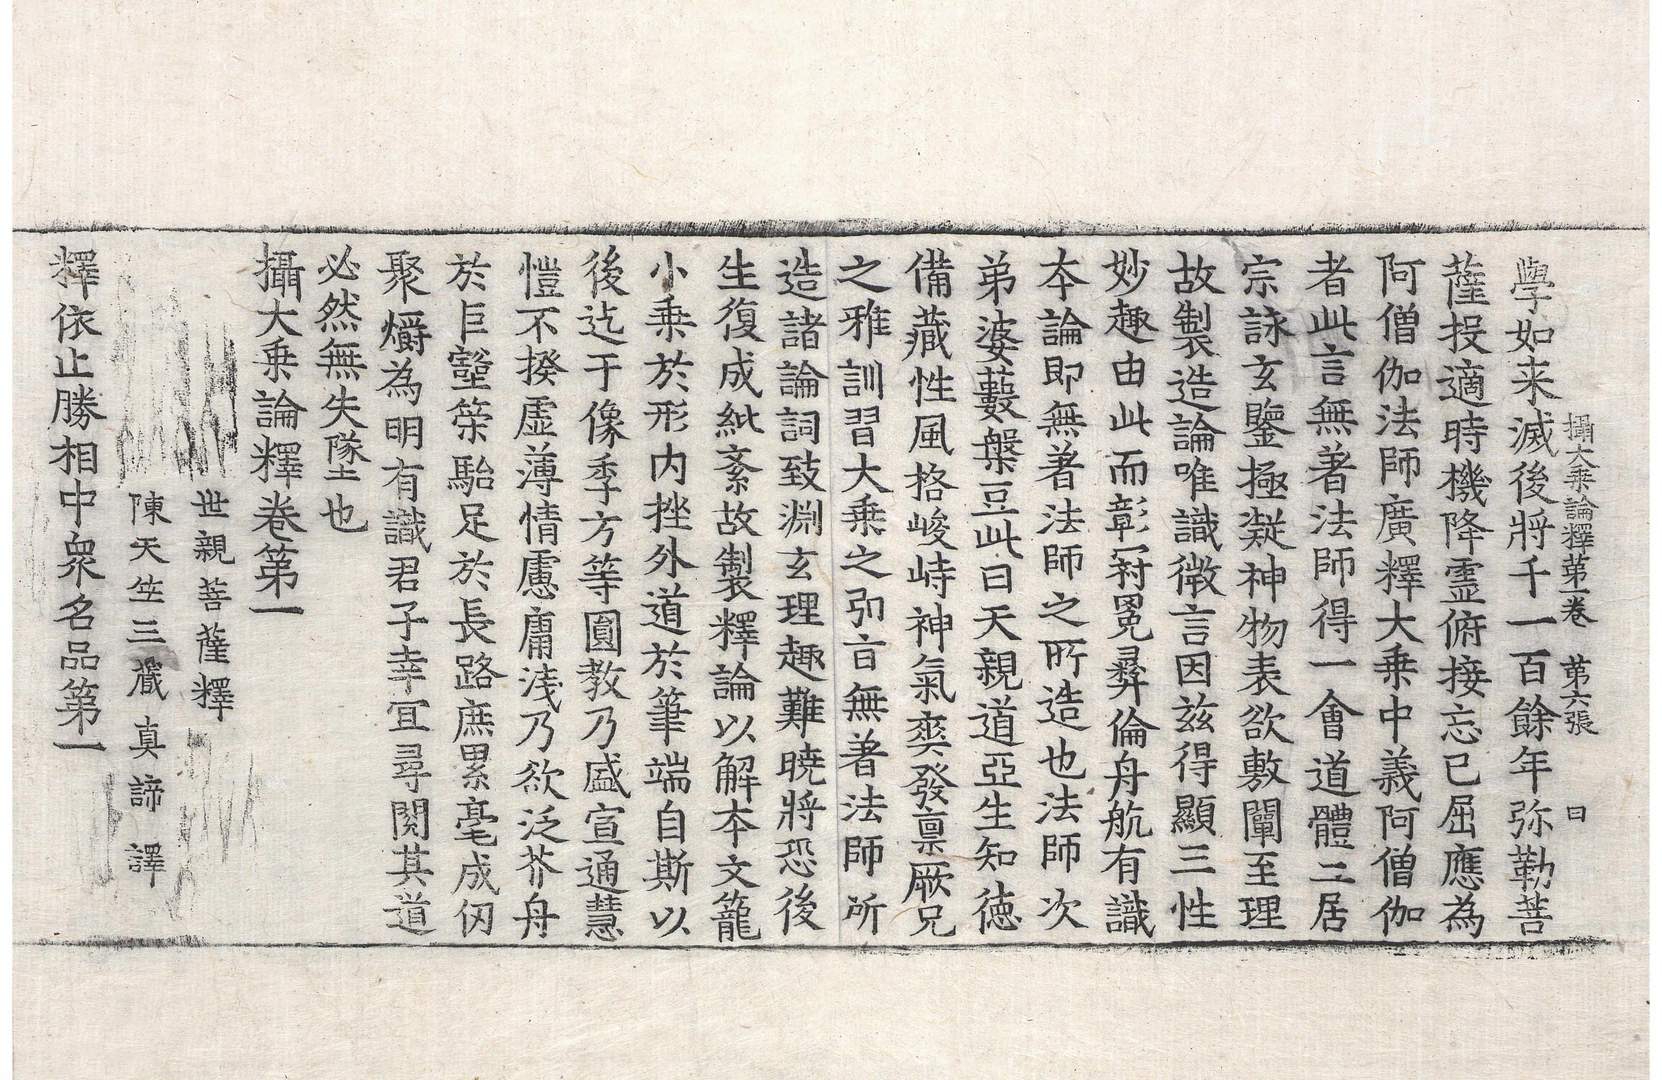 攝大乘論釋第一卷 第六張 曰
學如来滅後將千一百餘年弥勒菩
薩投適時機降靈俯接忘己屈應為
阿僧伽法師廣釋大乗中義阿僧伽
者此言無著法師得一會道體二居
宗詠玄鑒極凝神物表欲敷闡至理
故製造論唯識微言因茲得顯三性
妙趣由此而彰冠冕彞倫舟航有識
本論即無著法師之所造也法師次
弟婆藪槃豆此曰天親道亞生知德
備藏性風格峻峙神氣爽發稟厥兄
之雅訓習大乗之弘旨無著法師所
造諸論詞致淵玄理趣難曉將恐後
生復成紕紊故製釋論以解本文籠
小乗於形内挫外道於筆端自斯以
後迄于像季方等圓教乃盛宣通慧
愷不揆虛薄情慮庸淺乃欲泛芥舟
於巨壑策駘足於長路庶累毫成仞
聚爝為明有識君子幸冝尋閱其道
必然無失墜也
攝大乗論釋卷第一
世親菩薩釋
陳天竺三藏真諦譯
釋依止勝相中衆名品第一